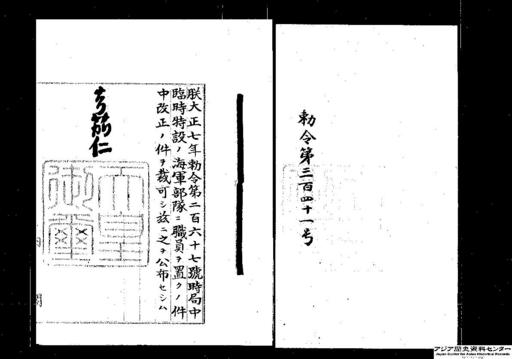 勅令第三百四十一号
朕大正七年勅令第二百六十七號時局中
臨時特設ノ海軍部隊ニ職員ヲ置クノ件
中改正ノ件ヲ裁可シ茲ニ之ヲ公布セシム
嘉仁
天皇
御璽
アジア歴史資料センター
Japan Center for Asian Historical Records